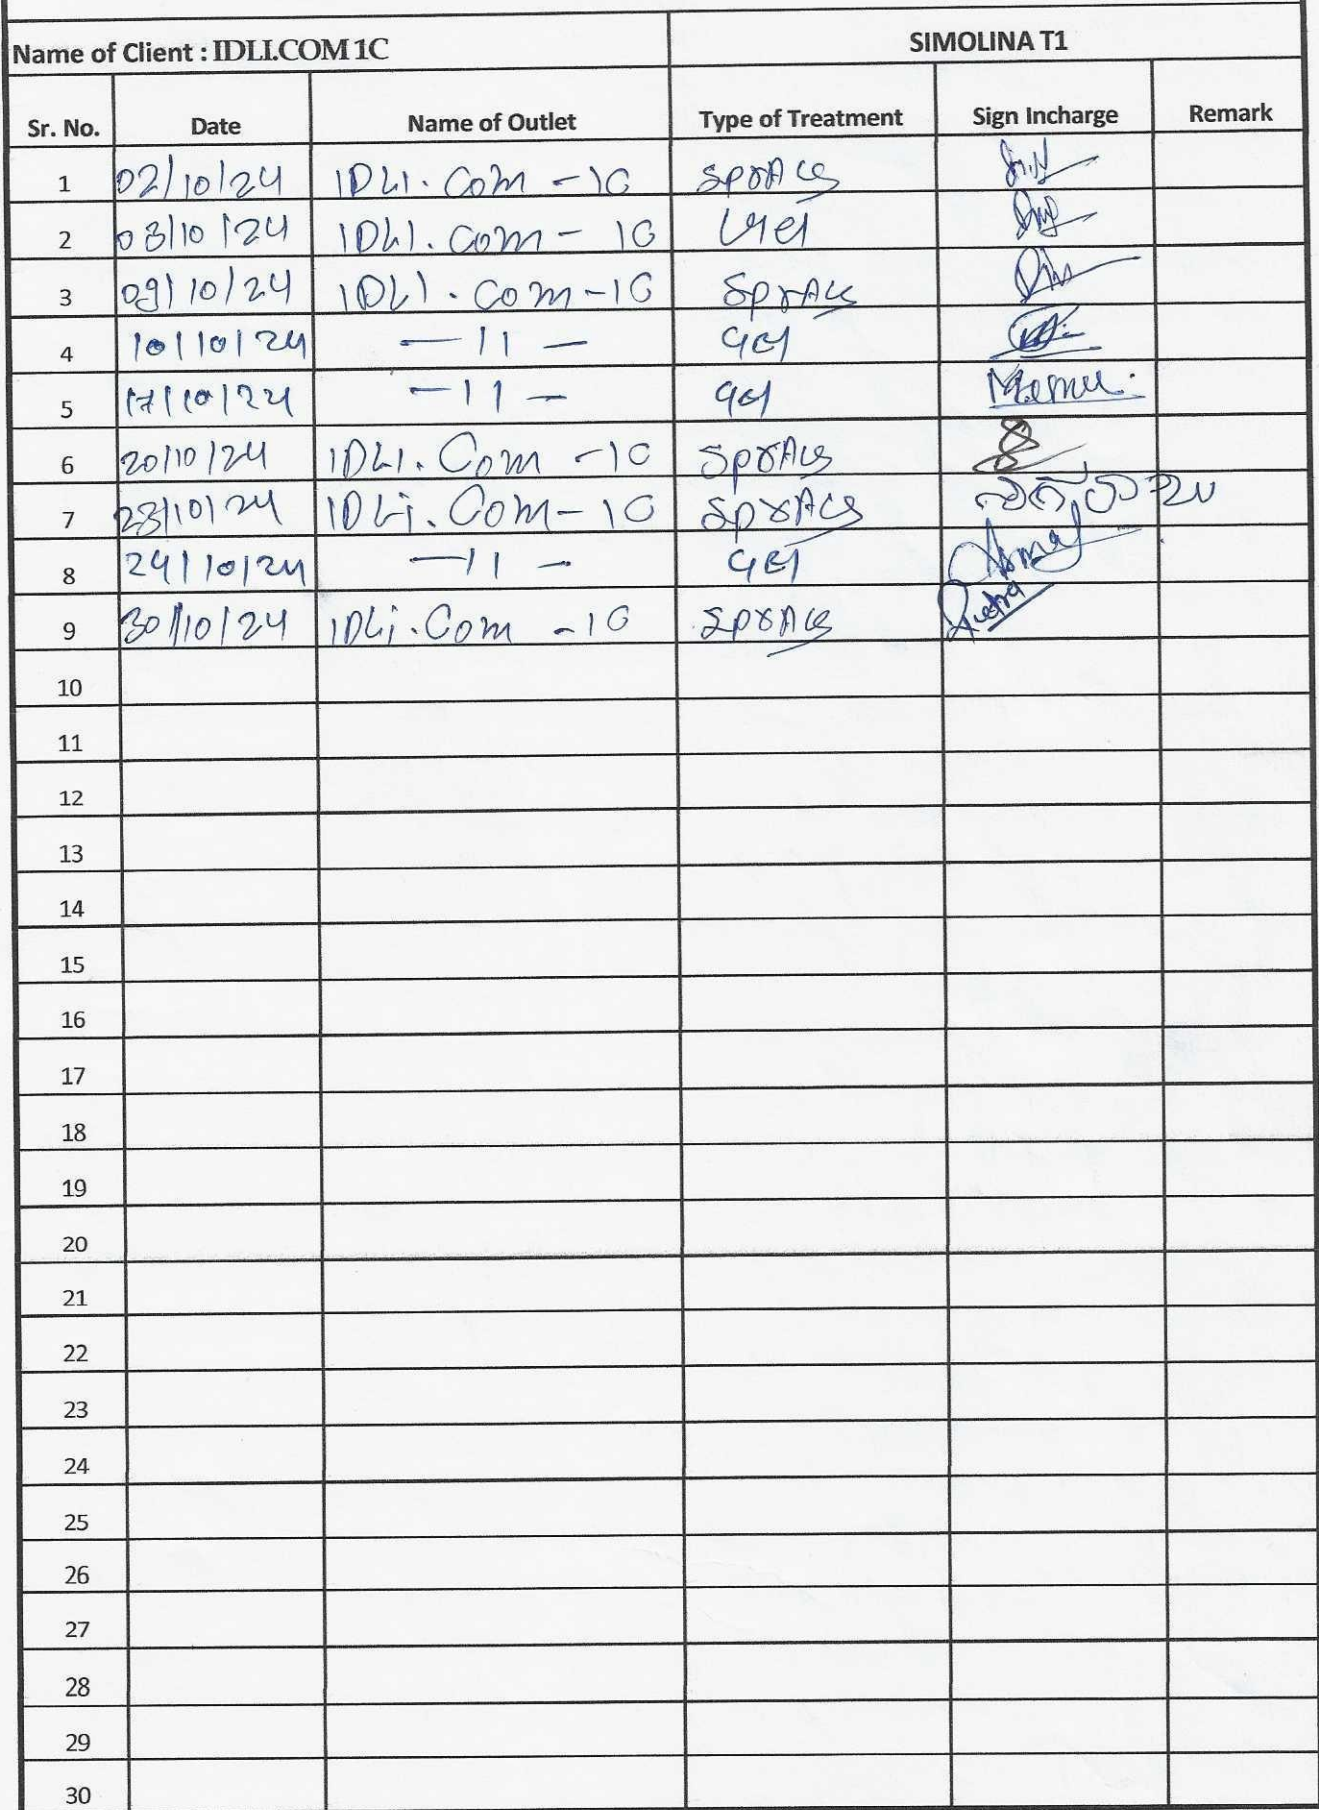 Name of Client : IDLI.COM 1C SIMOLINA T1
Sr. No. Date Name of Outlet Type of Treatment Sign Incharge Remark
1 02/10/24 IDLI. Com - 1C SprAy
2 03/10/24 IDLI. Com - 1C Gel
3 09/10/24 IDLI. Com - 1C SprAy
4 10/10/24 — 11 — Gel
5 17/10/24 — 11 — Gel
6 20/10/24 IDLI. Com - 1C SprAy
7 23/10/24 IDLi. Com - 1C SprAy
8 24/10/24 — 11 — Gel
9 30/10/24 IDLi. Com - 1C SprAy
10
11
12
13
14
15
16
17
18
19
20
21
22
23
24
25
26
27
28
29
30